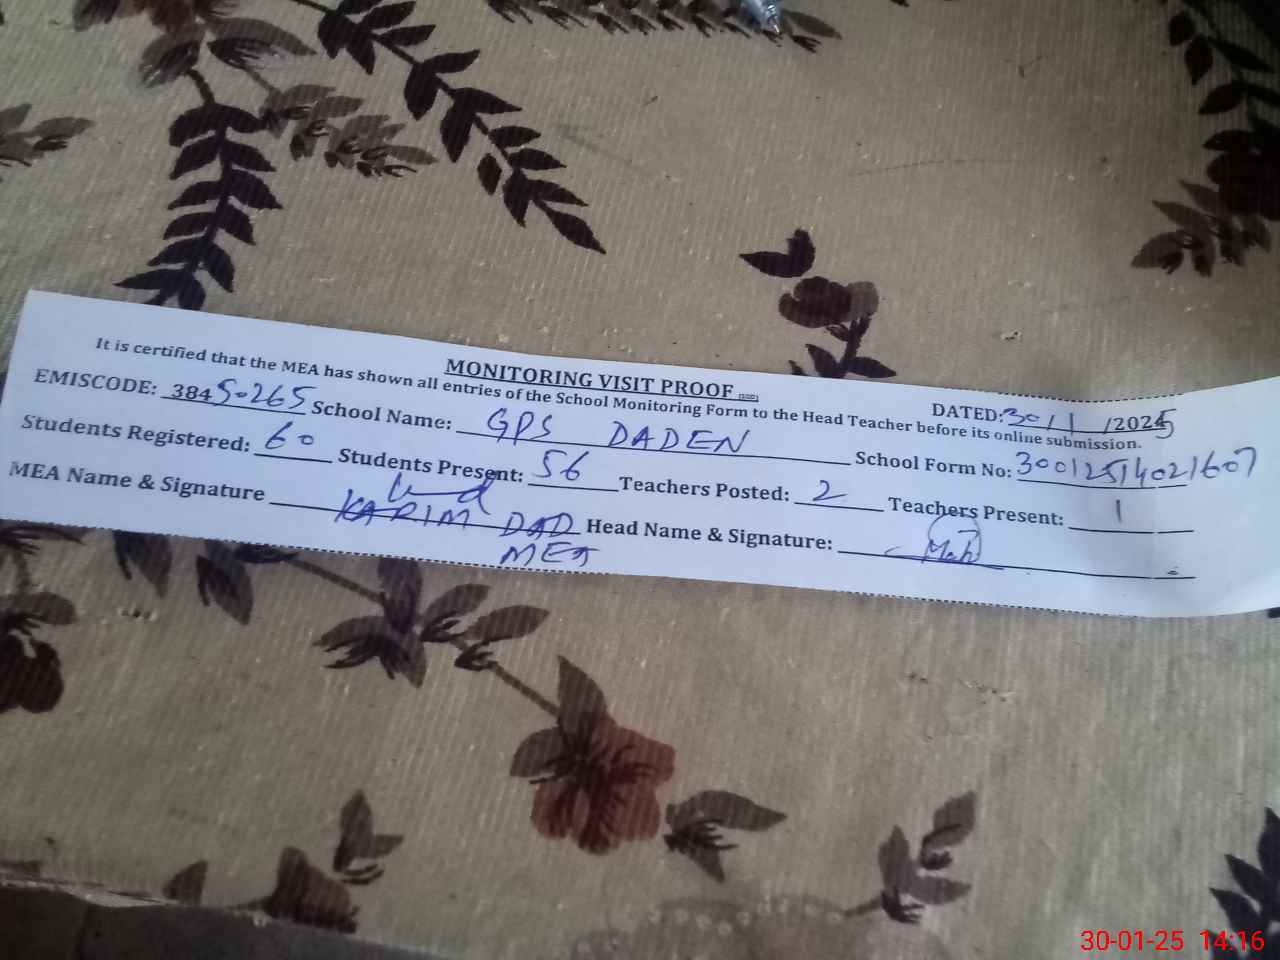 MONITORING VISIT PROOF
It is certified that the MEA has shown all entries of the School Monitoring Form to the Head Teacher before its online submission.
DATED: 30/1/2025
EMISCODE: 38450265 School Name: GPS DADEN School Form No: 30012514021607
Students Registered: 60 Students Present: 56 Teachers Posted: 2 Teachers Present: 1
MEA Name & Signature KARIM DAD Head Name & Signature:
MEA
30-01-25 14:16